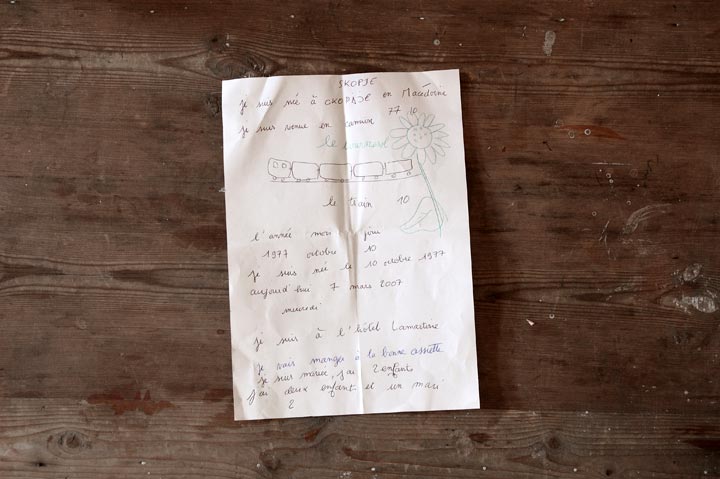 SKOPJE
je suis née à CKOPDJE en Macédoine
77 10
je suis venue en camion
le tournesol
le train 10
l'année mois jour
1977 octobre 10
je suis née le 10 octobre 1977
aujourd'hui 7 mars 2007
mercredi
je suis à l'hôtel Lamartine
je vais manger à la bonne assiette
je suis mariée, j'ai 2 enfants
j'ai deux enfant et un mari
2